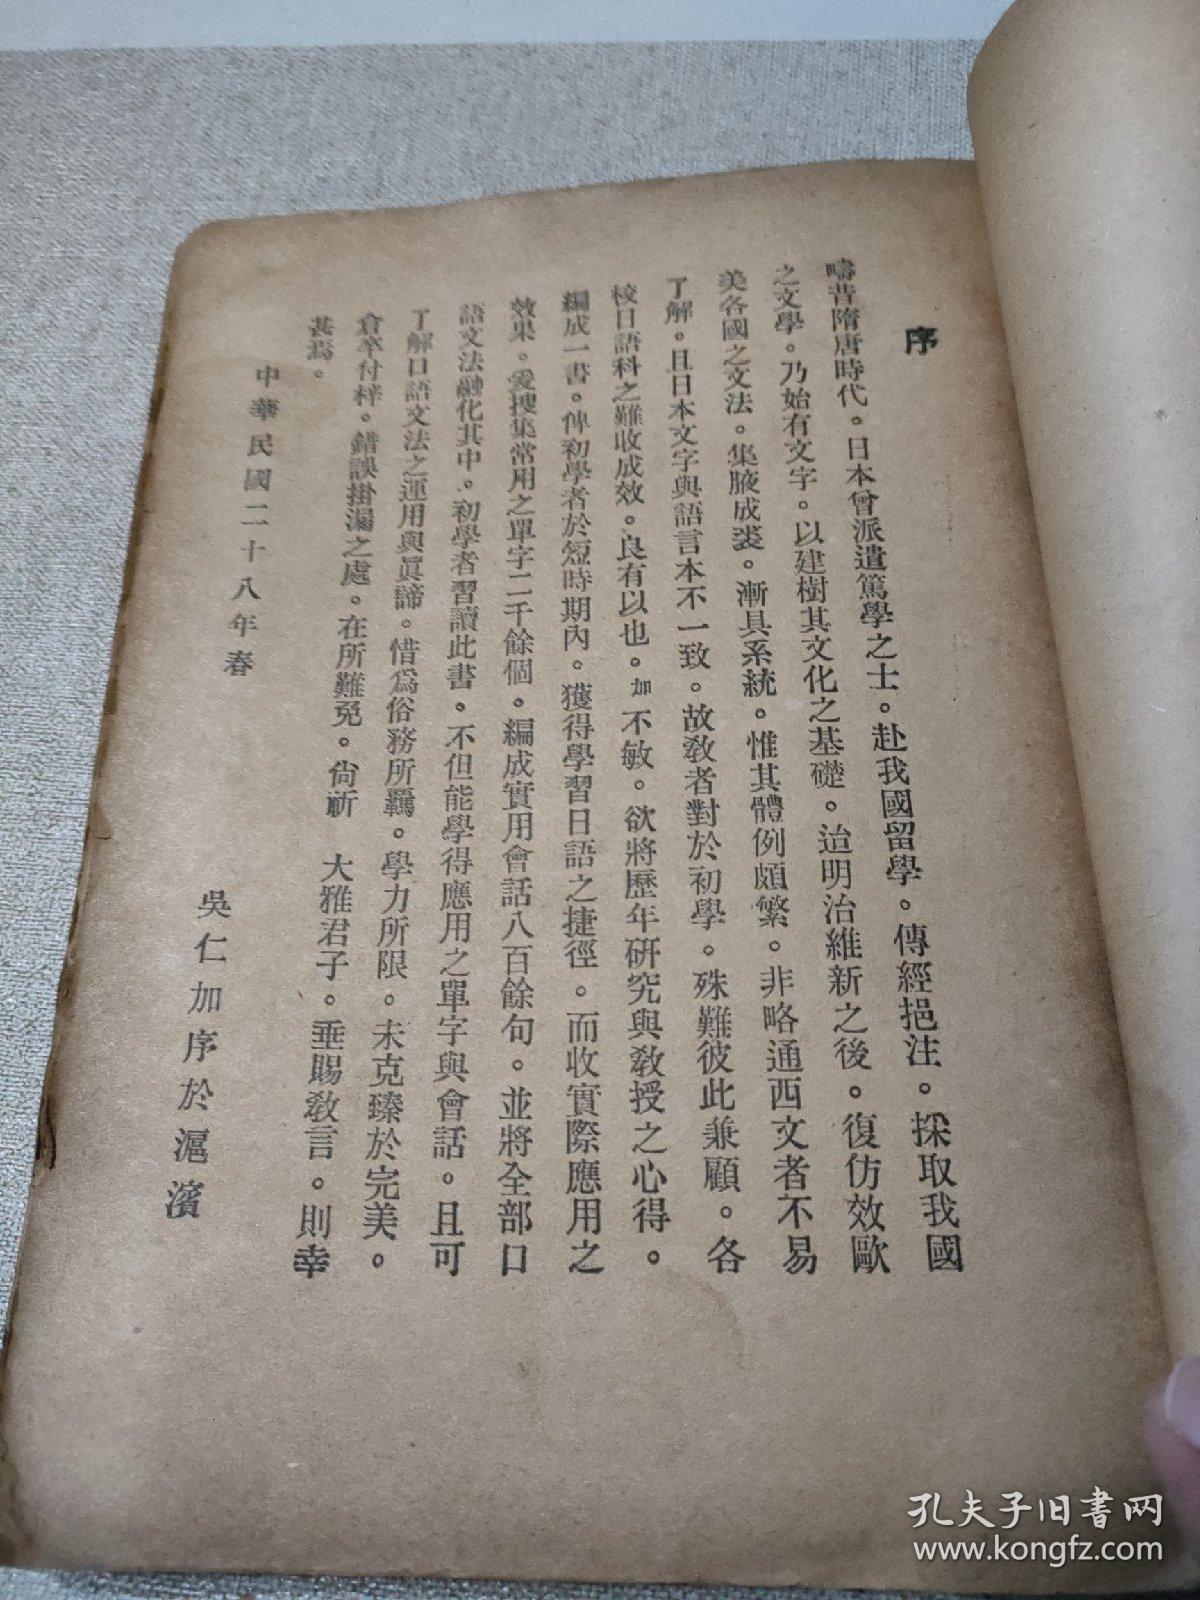 序
疇昔隋唐時代。日本曾派遣篤學之士。赴我國留學。傳經挹注。採取我國
之文學。乃始有文字。以建樹其文化之基礎。迨明治維新之後。復仿效歐
美各國之文法。集腋成裘。漸具系統。惟其體例頗繁。非略通西文者不易
了解。且日本文字與語言本不一致。故教者對於初學。殊難彼此兼顧。各
校日語科之難收成效。良有以也。加不敏。欲將歷年研究與教授之心得。
編成一書。俾初學者於短時期內。獲得學習日語之捷徑。而收實際應用之
效果。爰搜集常用之單字二千餘個。編成實用會話八百餘句。並將全部口
語文法融化其中。初學者習讀此書。不但能學得應用之單字與會話。且可
了解口語文法之運用與眞諦。惜爲俗務所羈。學力所限。未克臻於完美。
倉卒付梓。錯誤掛漏之處。在所難免。尙祈　大雅君子。垂賜教言。則幸
甚焉。
中華民國二十八年春
吳仁加序於滬濱
孔夫子旧书网
www.kongfz.com